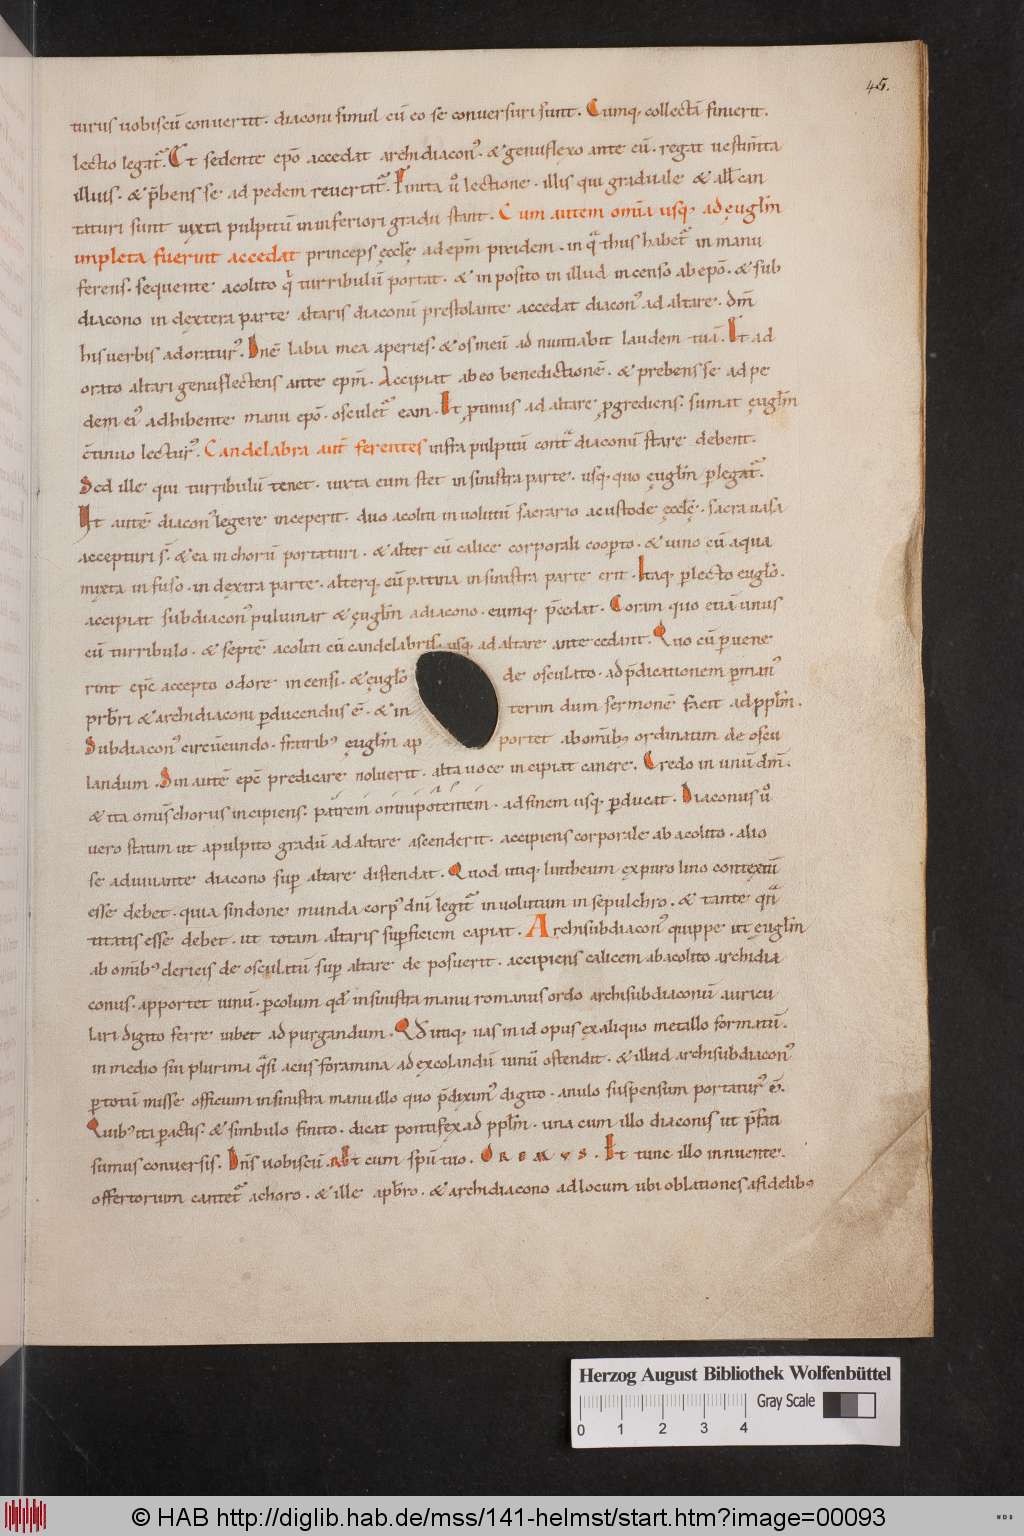 45.
turus uobiscū conuertit. diaconi simul cū eo se conuersuri sunt. Cumq, collectā finierit.
lectio legat᷑. Et sedente ep̄o accedat archidiacon᷒. & genuflexo ante eū. regat uestim̄ta
illius. & p̄bens se ad pedem reuertat᷑. Finita ů lectione. illis qui graduale & all̄ can
taturi sunt iuxta pulpitū in inferiori gradu stant. Cum autem om̄ia usq, ad ęugl̄m
impleta fuerint accedat princeps ęccl̄ę ad ep̄m pixidem. in qͣ thus habet᷑ in manu
ferens. sequente acolito qͥ turribulū portat. & in posito in illud incenso ab ep̄o. & sub
diacono in dextera parte altaris diaconū prestolante accedat diacon᷒ ad altare. dm̄
his uerbis adoratur᷒. Dn̄e labia mea aperies. & os meū ad nuntiabit laudem tuā. It ad
orato altari genuflectens ante ep̄m. Accipiat ab eo benedictionē. & prebens se ad pe
dem ei᷒ adhibente manu ep̄o. osculet᷑ eam. Et p̱nnus ad altare p̱grediens. sumat ęugl̄m
c̄tinuo lectur᷒. Candelabra aut̄ ferentes infra pulpitū contͣ diaconū stare debent.
Sed ille qui turribulū tenet. iuxta eum stet in sinistra parte. usq, quo ęugl̄m p̱legat᷑.
Ut autē diacon᷒ legere inceperit. duo acoliti inuolutū sacrario a custode ęccl̄ę. sacra uasa
accepturi s̄. & ea in chorū portaturi. & alter cū calice corporali coop̱to. & uino cū aqua
mixta infuso. in dextra parte. alterq, cū patina in sinistra parte erit. Itaq, p̱lecto eugl̄o.
accipiat subdiacon᷒ puluinar & ęugl̄m a diacono. eumq, p̄cedat. Coram quo etiā unus
cū turribulo. & septē acoliti cū candelabris. usq, ad altare antecedant. Quo cū p̱uene
rint ep̄c accepto odore incensi. & ęugl̄o de osculato. ad p̄dicationem p̱man᷒
pr̄b̄ri & archidiaconi p̱ducendus ē. & in terim dum sermonē facit ad pp̄l̄m.
Subdiacon᷒ circūeundo. fr̄atrib᷒ ęugl̄m ap portet ab omīb᷒ ordinatim de oscu
landum. Sin autē ep̄c predicare noluerit. alta uoce incipiat canere. Credo in unū dm̄.
& ita omīs chorus incipiens. patrem omnipotentem. ad finem usq, p̱ducat. Diaconus ů
uero statim ut a pulpito gradū ad altare ascenderit. accipiens corporale ab acolito. alio
se adiuuante diacono sup̱ altare distendat. Quod utiq, lintheum ex puro lino contextū
esse debet. quia sindone munda corp᷒ dn̄i legit᷑ inuolutum in sepulchro. & tante qn̄
titatis esse debet. ut totam altaris sup̱ficiem capiat. Archisubdiacon᷒ quippe ut ęugl̄m
ab omīb᷒ clericis de osculatū sup̱ altare de posuerit. accipiens calicem ab acolito archidia
conus. apportet uinū. p̱colum qd̄ in sinistra manu romanus ordo archisubdiaconū auricu
lari digito ferre iubet ad purgandum. Qd̄ utiq, uas in id opus ex aliquo metallo formatū.
in medio sui plurima qͣsi acus foramina ad excolandū uinū ostendit. & illud archisubdiacon᷒
p̱ totū misse officium in sinistra manu illo quo p̄dixim᷒ digito. anulo suspensum portatur᷒ ē.
Quib᷒ ita p̱actis. & simbulo finito. dicat pontifex ad pp̄l̄m. una cum illo diaconis ut p̄fati
sumus conuersis. Dn̄s uobiscū. R Et cum sp̄u tuo. OREMUS. Et tunc illo innuente.
offertorium cantet᷑ a choro. & ille a pr̄b̄ro. & archidiacono ad locum ubi oblationes a fidelib᷒
Herzog August Bibliothek Wolfenbüttel
0 1 2 3 4 Gray Scale
© HAB http://diglib.hab.de/mss/141-helmst/start.htm?image=00093